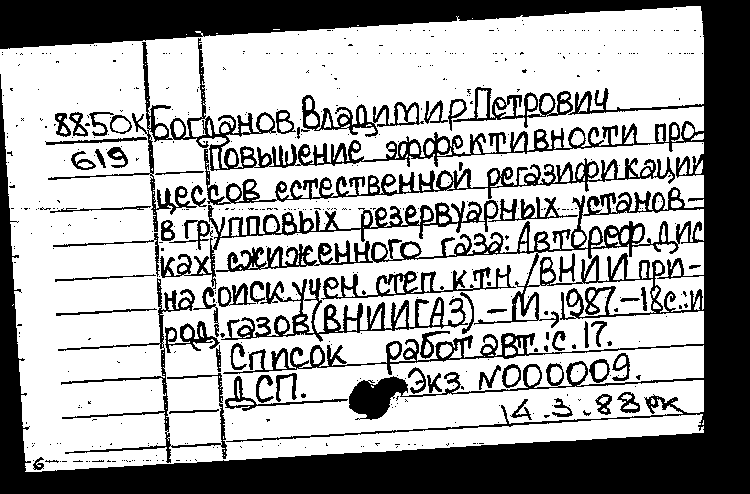 88-5ОК Богданов, Владимир Петрович
619 Повышение эффективности про-
цессов естественной регазификации
в групповых резервуарных установ-
ках сжиженного газа: Автореф. дис
на соиск. учен. степ. к.т.н. / ВНИИ при-
род. газов (ВНИИГАЗ). – М., 1987. – 18с.: и
Список работ авт.: с. 17.
ДСП. Экз. N000009.
14.3.88 рк
6